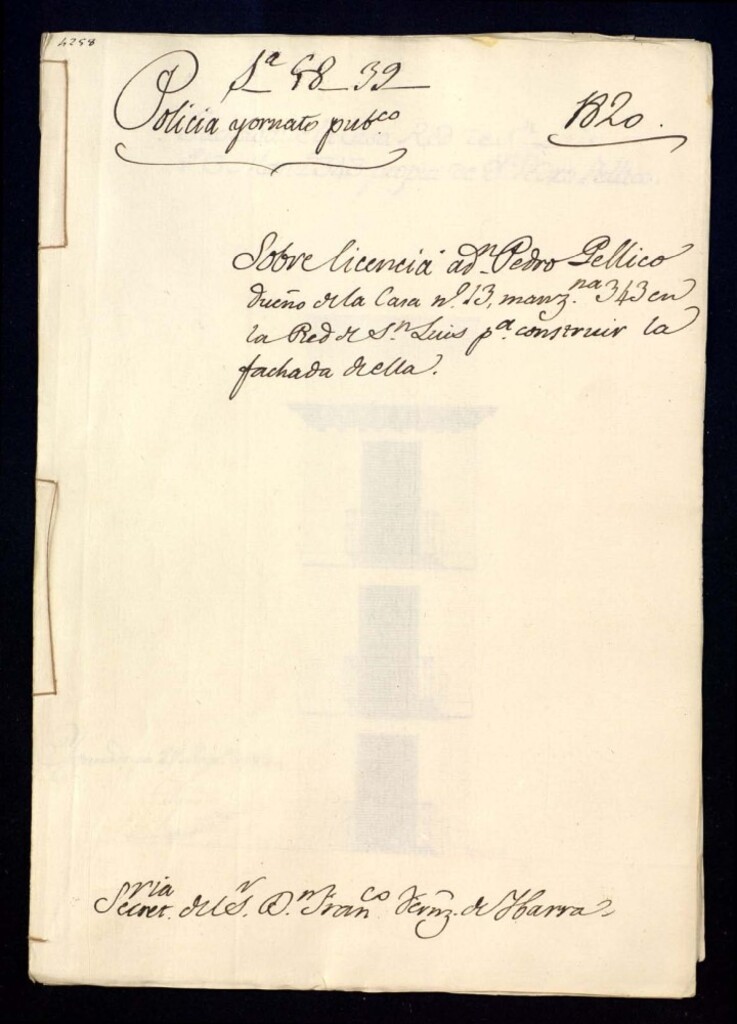 4258
Sª 58-39
Policia y ornato pubco
1820.
Sobre licencia a dn. Pedro Pellico
dueño de la Casa nº. 13, manz.na 343 en
la Red de Sn. Luis pª. construir la
fachada de ella.
Secret.ria del Sr. Dn. Franco Fernz. de Ibarra